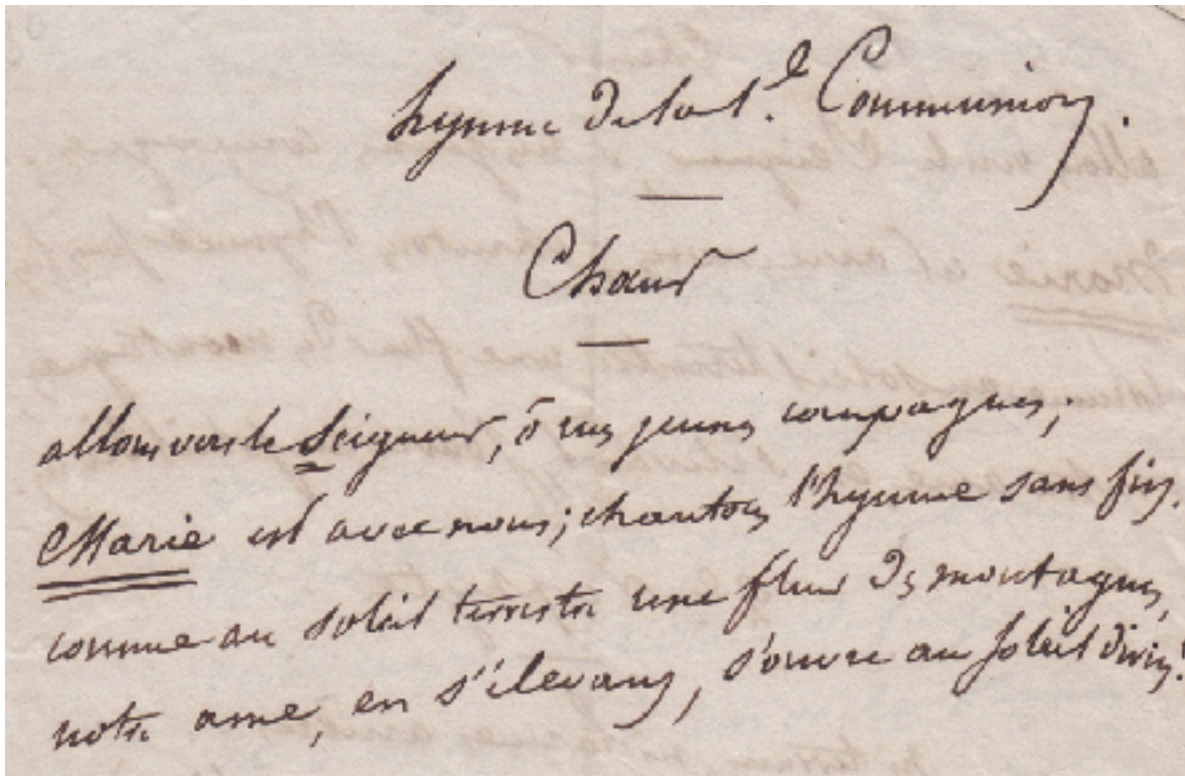 hymne de la Ste. Communion.
Chœur
allons vers le Seigneur, ô mes jeunes compagnes;
Marie est avec nous; chantons l'hymne sans fin.
comme au soleil terrestre une fleur des montagnes,
notre ame, en s'élevant, s'ouvre au soleil divin!